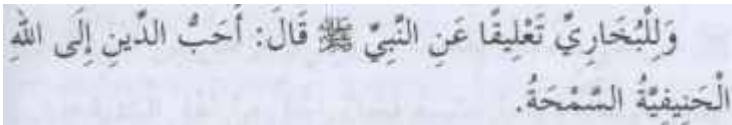 وَلِلْبُخَارِيِّ تَعْلِيقًا عَنِ النَّبِيِّ ﷺ قَالَ: أَحَبُّ الدِّينِ إِلَى اللهِ
الْحَنِيفِيَّةُ السَّمْحَةُ.